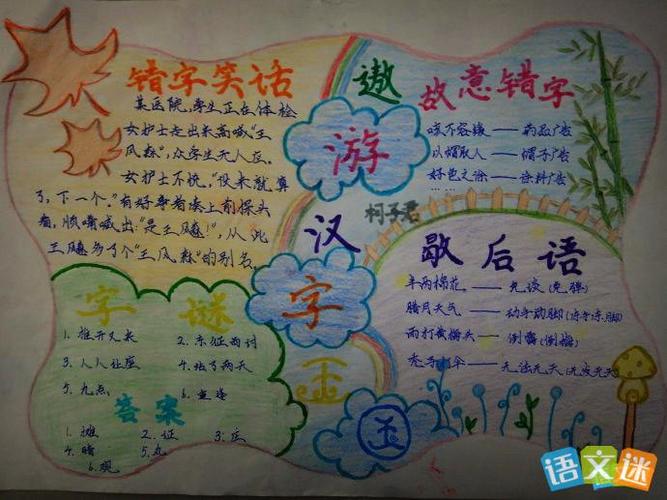 错字笑话
某医院,学生正在体检
女护士走出来高喊"王
风森",众学生无人应。
女护士不悦。"没来就算
了,下一个。"有好事者凑上前探头
看,顺嘴喊出:"是王飚!",从此
王飚多了个"王风森"的别名。
遨
游
汉
字
王
国
柯子君
故意错字
咳不容缓——药品广告
以帽取人——帽子广告
好色之涂——涂料广告
……
歇后语
半两棉花——免谈(免弹)
腊月天气——动手动脚(冻手冻脚)
雨打黄梅头——倒霉(倒梅)
秃子打伞——无法无天(无发无天)
字谜
1. 推开又来
2. 东征西讨
3. 人人社座
4. 找了两天
5. 九点
6.
答案
1. 摊
2. 证
3. 庄
4. 晴
5. 丸
6. 观
语文迷